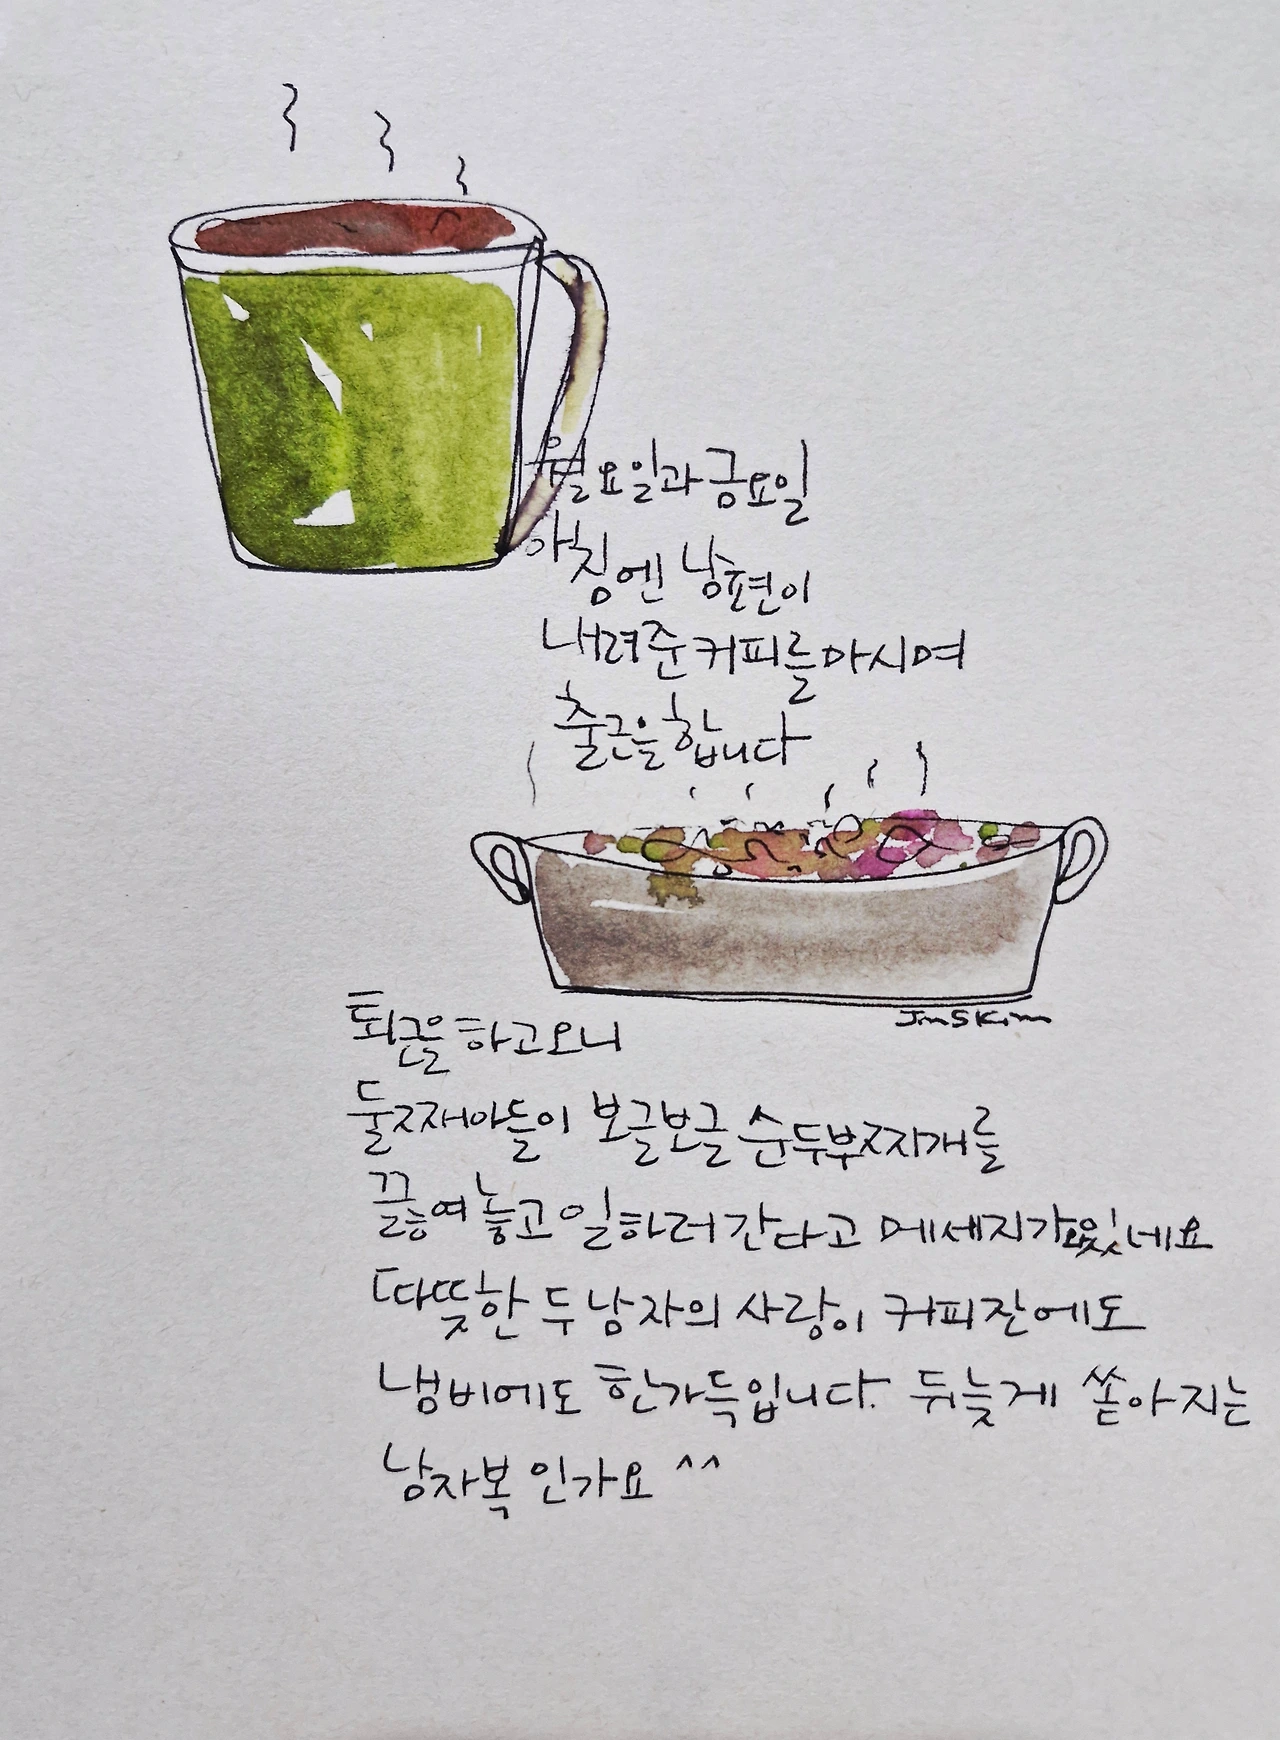 월요일과 금요일
아침엔 남편이
내려준 커피를 마시며
출근을 합니다
JinSKim
퇴근을 하고오니
둘째아들이 보글보글 순두부찌개를
끓여놓고 일하러 간다고 메세지가와있네요
따뜻한 두 남자의 사랑이 커피잔에도
냄비에도 한가득입니다. 뒤늦게 쏟아지는
남자복 인가요 ^^